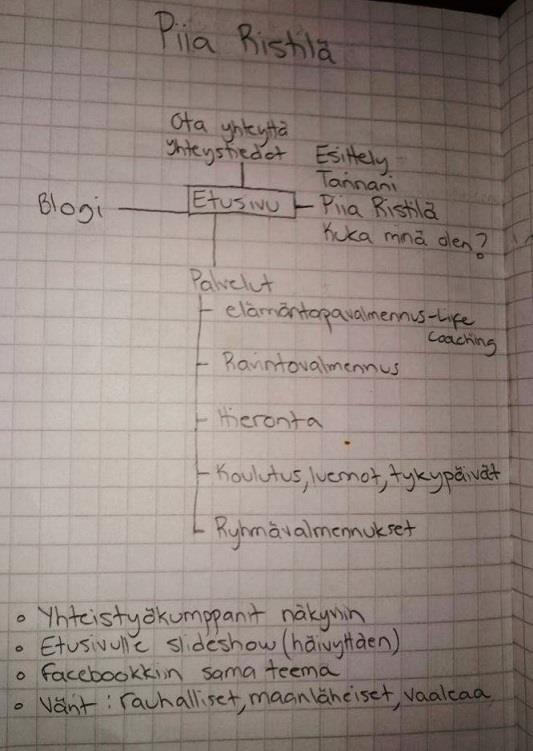 Piia Ristilä
Ota yhteyttä
Yhteystiedot
Esittely
Tarinani
Blogi
Etusivu
Piia Ristilä
Kuka minä olen?
Palvelut
elämäntapavalmennus-Life
Coaching
Ravintovalmennus
Hieronta
Koulutus, luennot, tykypäivät
Ryhmävalmennukset
Yhteistyökumppanit näkyviin
Etusivulle slideshow (häivyttäen)
Facebookkiin sama teema
Värit: rauhalliset, maanläheiset, vaaleaa